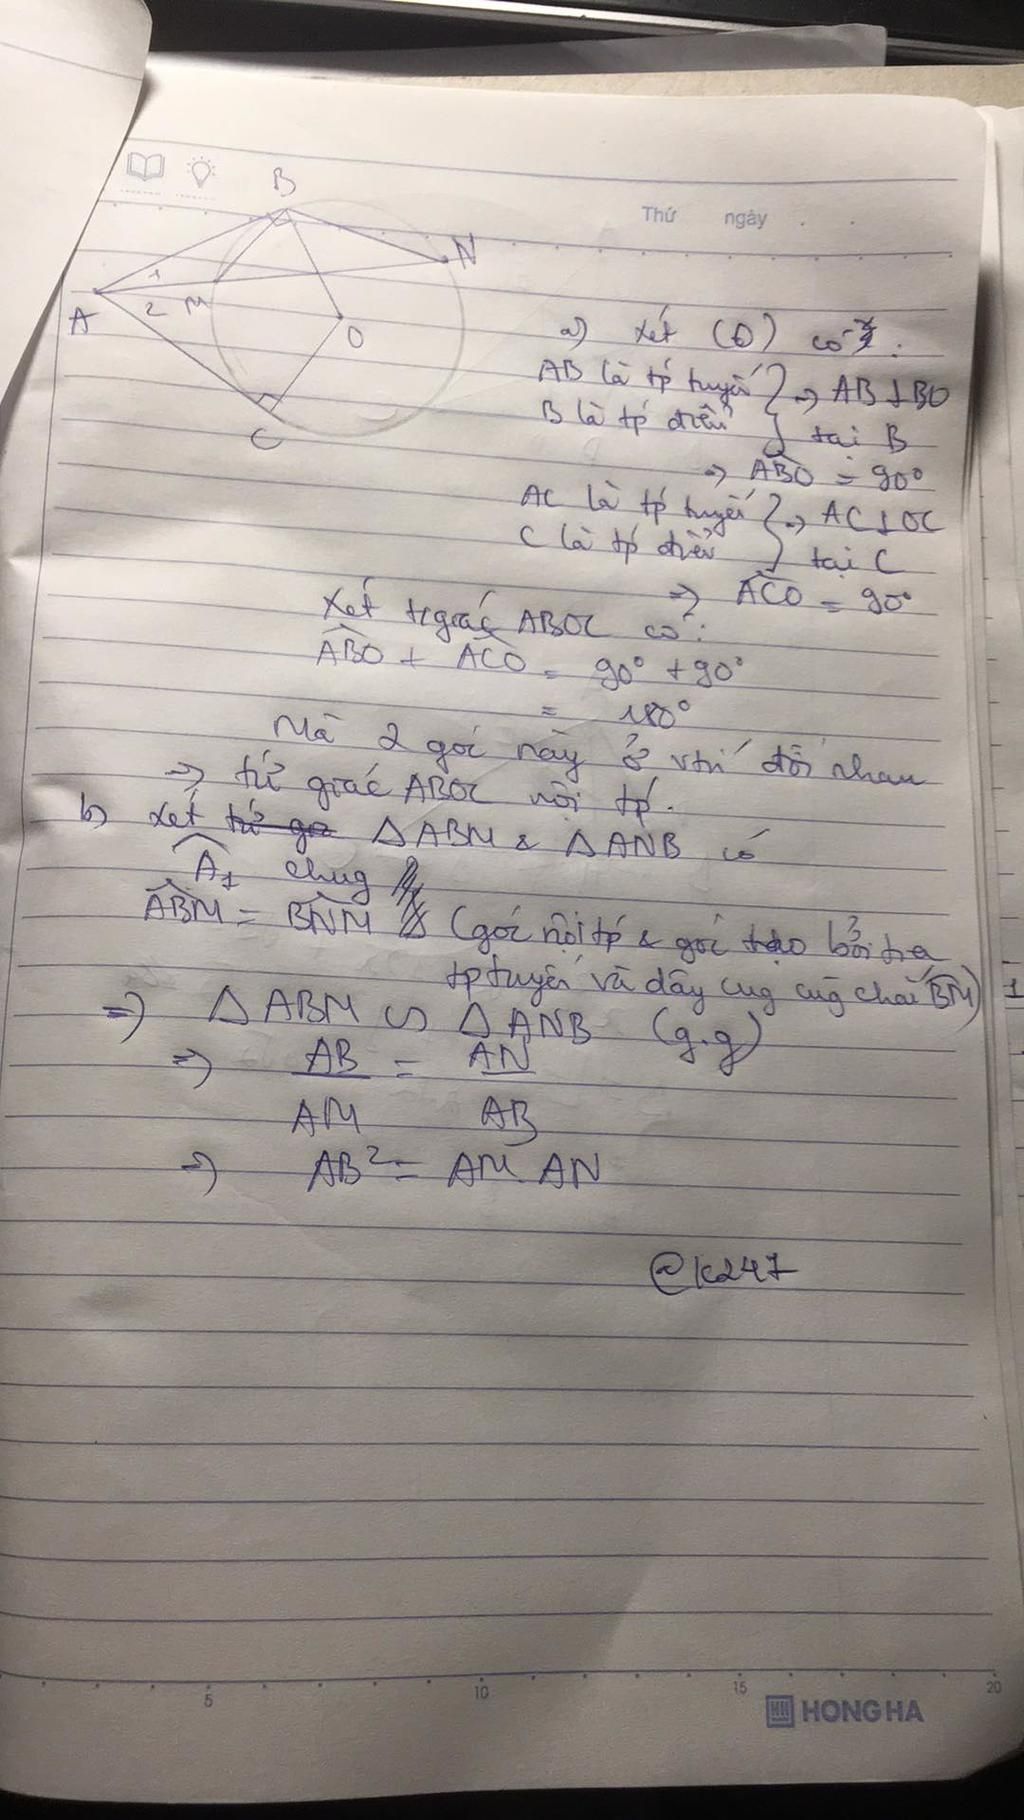 B
Thứ ngày
N
1
A
2
M
O
C
a) Xét (O) có:
AB là tp tuyến } => AB ⊥ BO
B là tp điểm } tại B
=> ABO = 90°
AC là tp tuyến } => AC ⊥ OC
C là tp điểm } tại C
=> ACO = 90°
Xét tgiác ABOC có:
ABO + ACO = 90° + 90°
= 180°
Mà 2 góc này ở vtrí đối nhau
=> tứ giác ABOC nội tp.
b) Xét tứ gia ΔABM & ΔANB có
A1 chug
ABM = BNM (góc nội tp & góc tạo bởi tia
tp tuyến và dây cug cùg chắn BM)
=> ΔABM ∽ ΔANB (g.g)
=> AB/AM = AN/AB
=> AB² = AM.AN
@k247
5 10 15 20
HONG HA